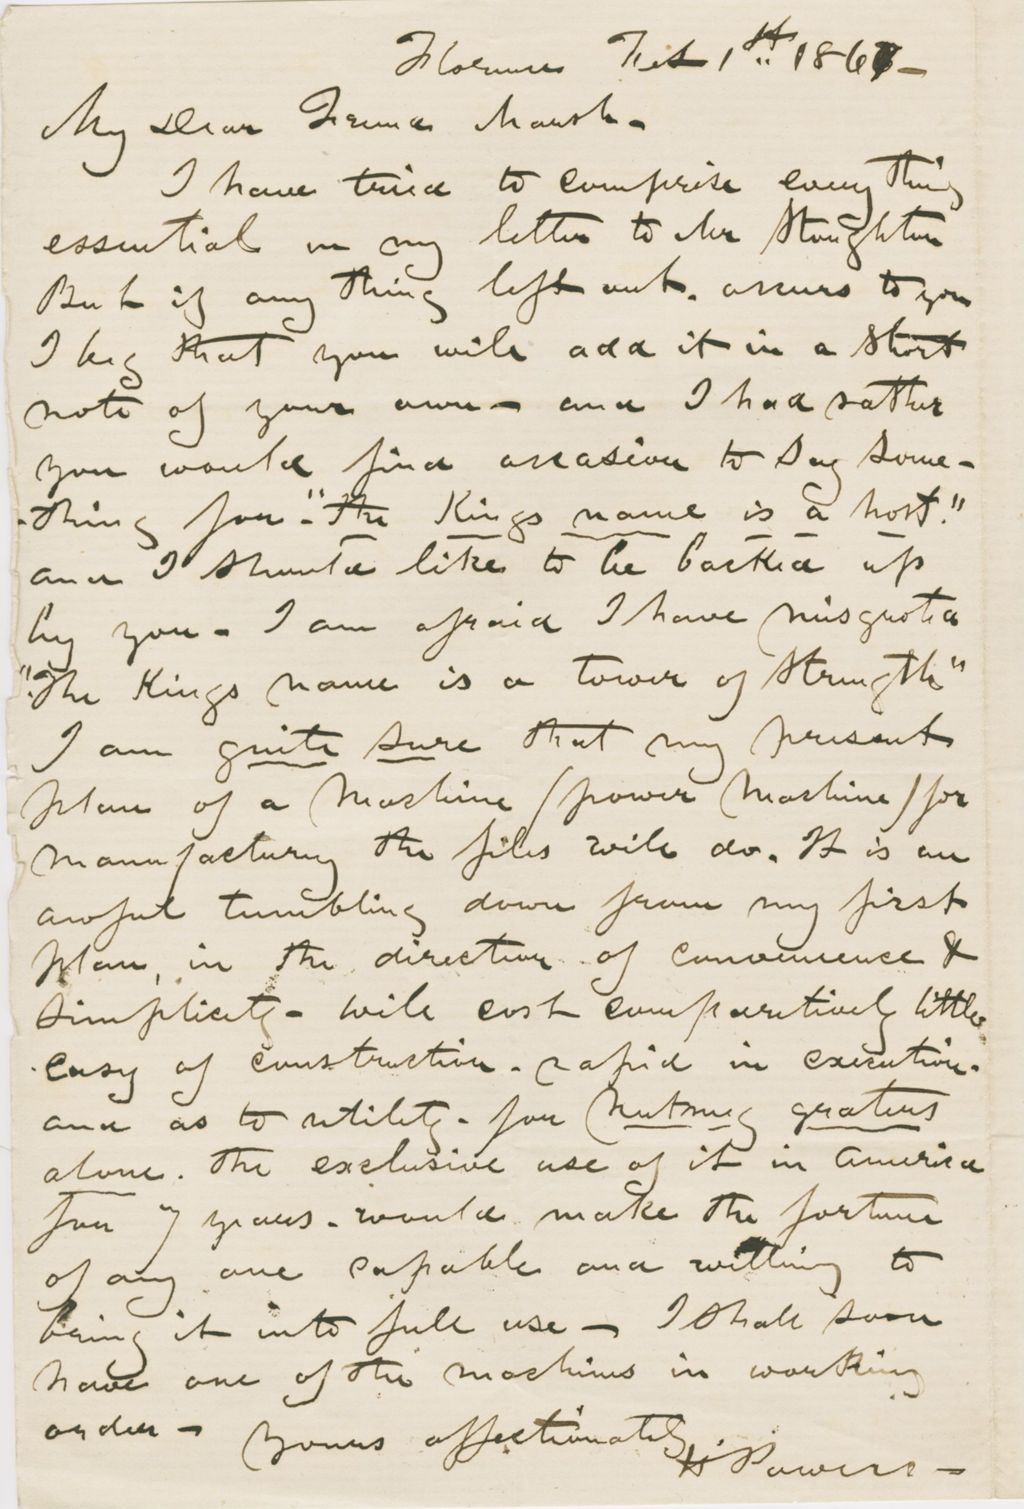 Florence Feb 1st 1867 -
My Dear Friend Marsh -
I have tried to comprise every thing
essential in my letter to Mr Stoughton
But if any thing left out. occurs to you
I beg that you will add it in a short
note of your own - and I had rather
you would find occasion to say some-
-thing for - "the Kings name is a host."
and I should like to be backed up
by you - I am afraid I have misquoted
"The Kings name is a tower of Strength"
I am quite sure that my present
plan of a Machine (power Machine) for
manufacturing the files will do. It is an
awful tumbling down from my first
plan, in the direction of convenience &
simplicity - will cost comparitively little
easy of construction - rapid in execution -
and as to utility - for Nutmeg graters
alone. The exclusive use of it in America
for 7 years - would make the fortune
of any one capable and willing to
bring it into full use - I shall soon
have one of the machines in working
order - Yours affectionately
H Powers -